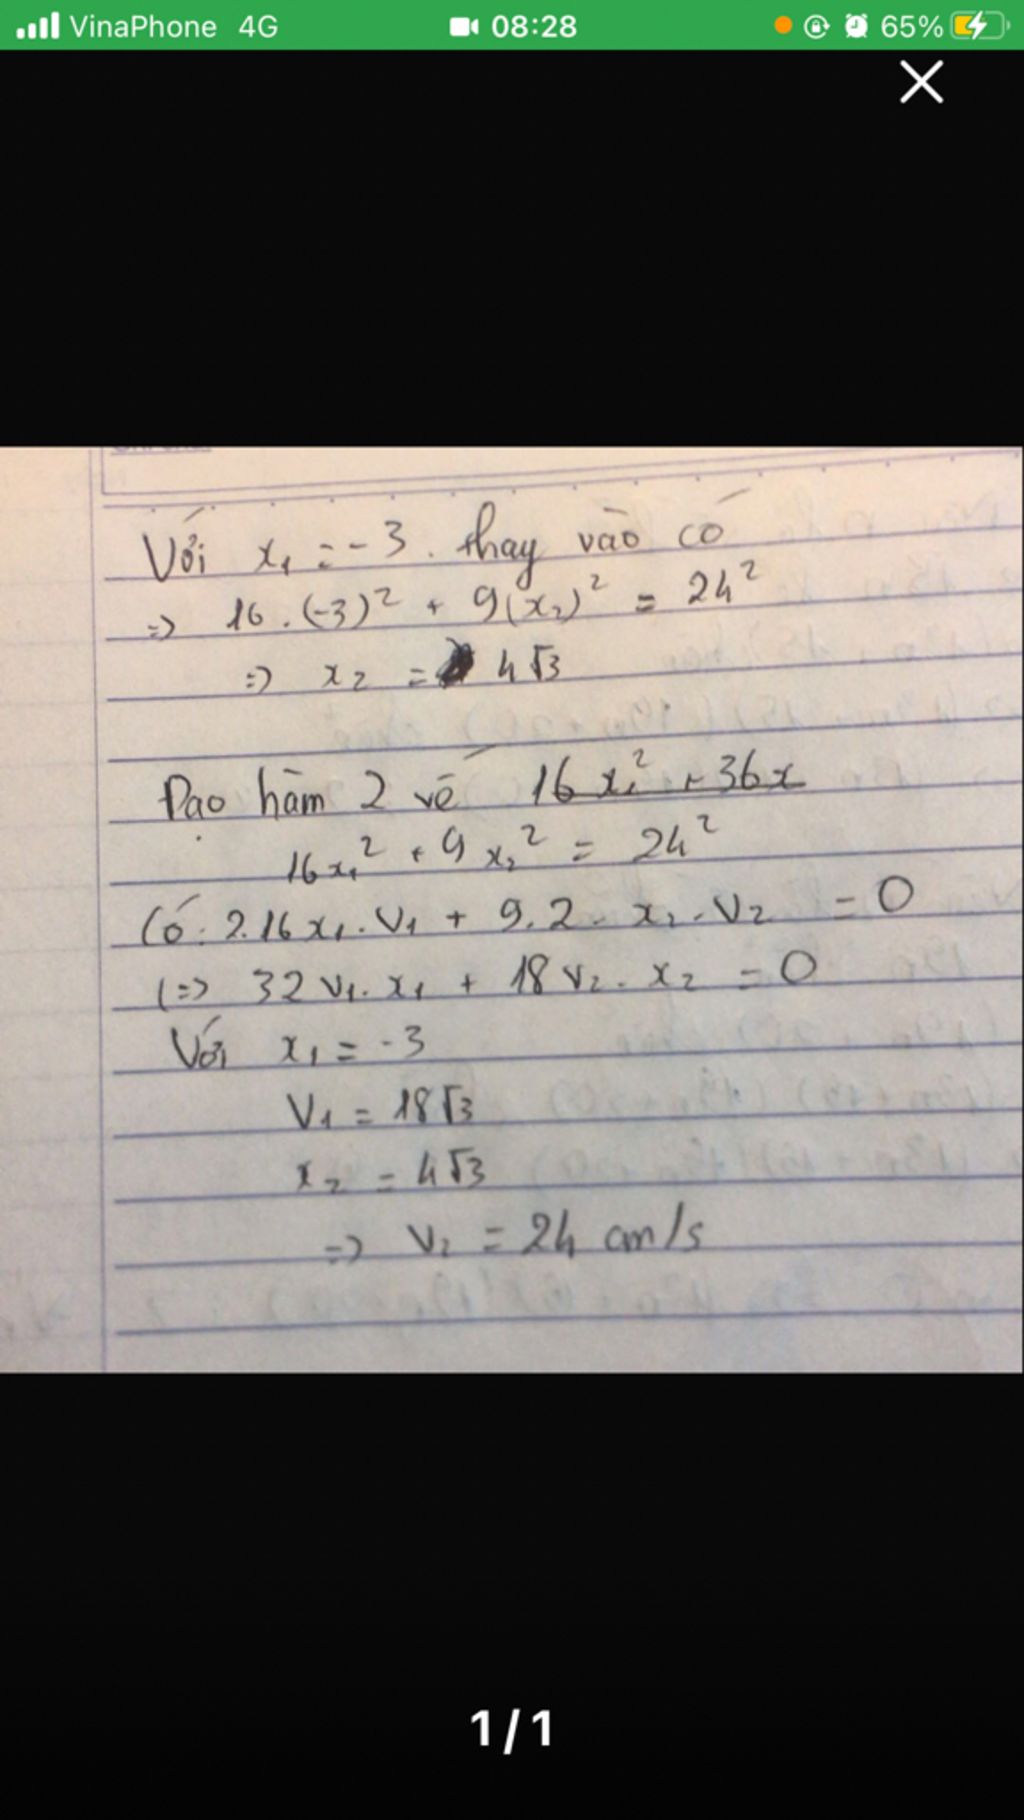 VinaPhone 4G 08:28 65%
Với x₁ = -3. thay vào có
=> 16.(-3)² + 9(x₂)² = 24²
=> x₂ = 4√3
Đạo hàm 2 vế 16x₁² + 36x
16x₁² + 9x₂² = 24²
Có: 2.16x₁.V₁ + 9.2.x₂.V₂ = 0
(=> 32V₁.x₁ + 18V₂.x₂ = 0
Với x₁ = -3
V₁ = 18√3
x₂ = 4√3
=> V₂ = 24 cm/s
1/1